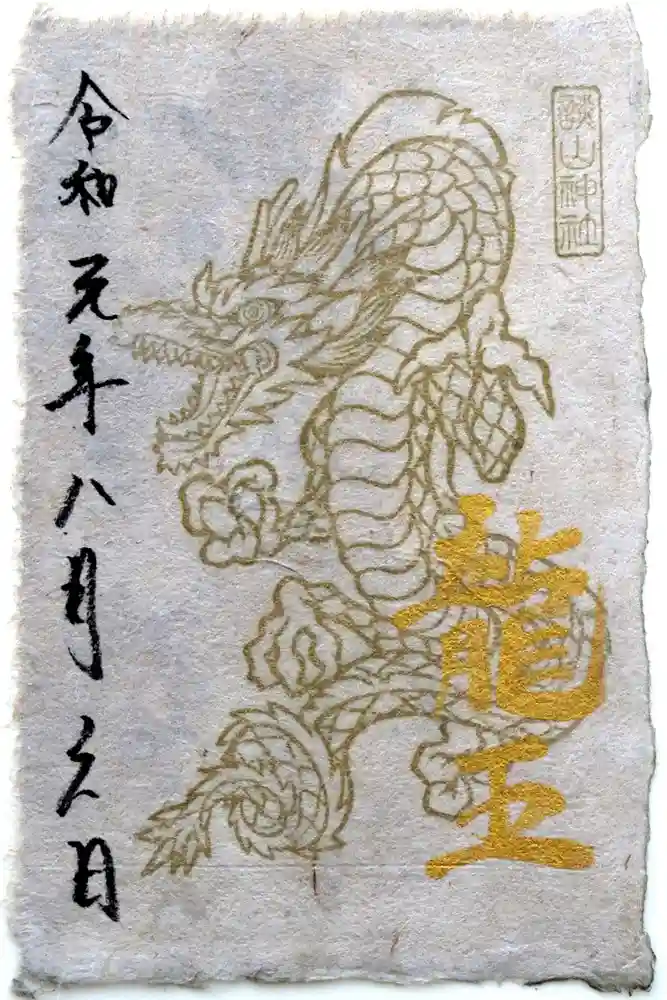 談山神社
龍王
令和元年八月六日